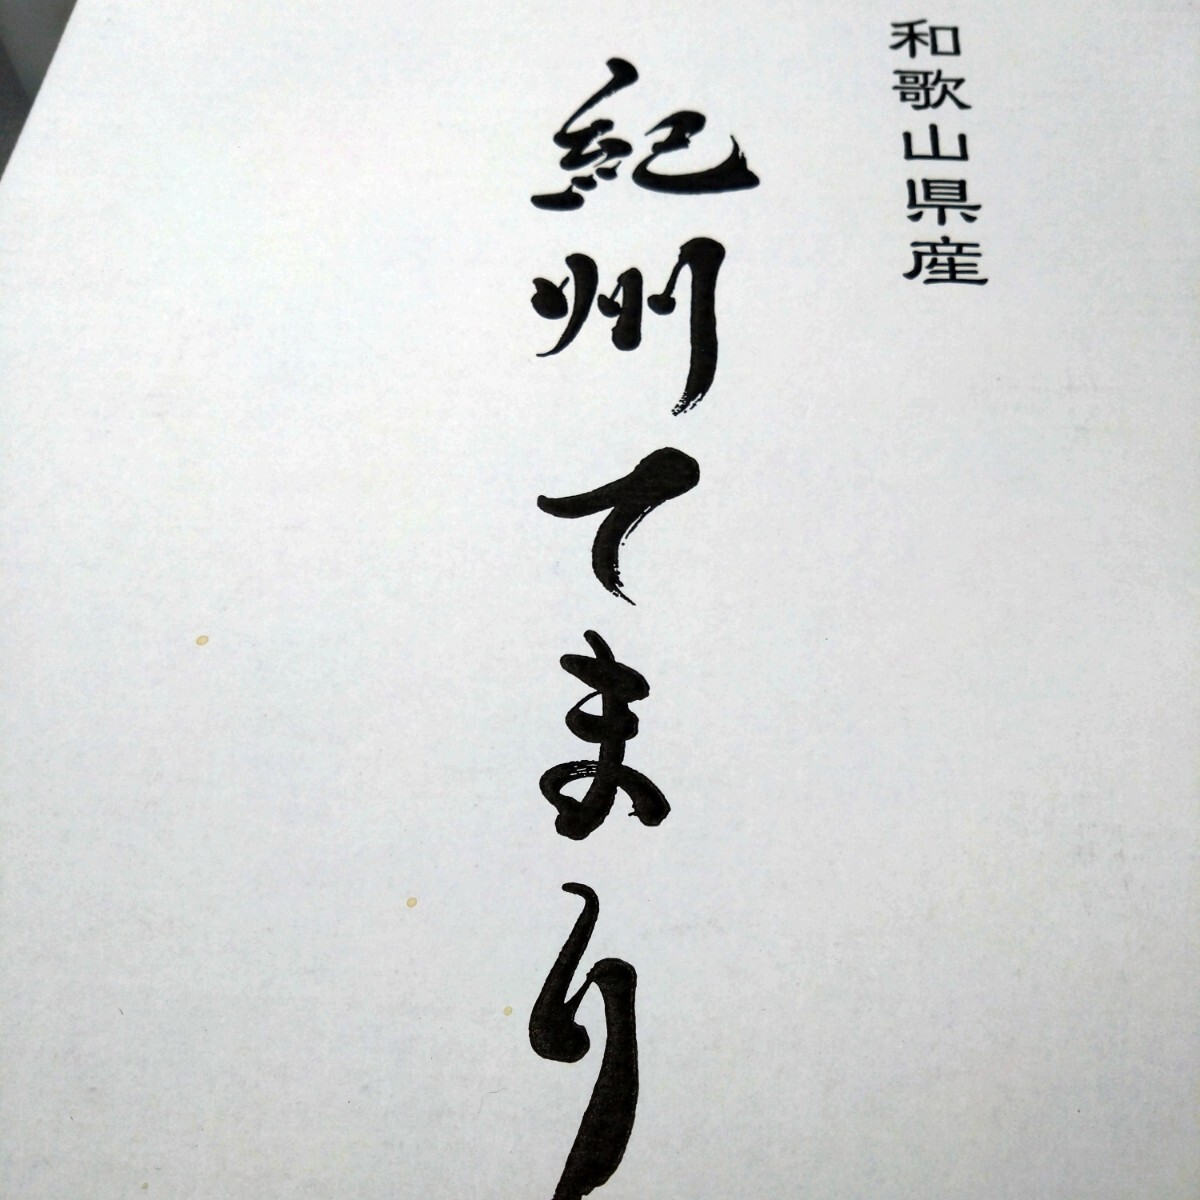 和歌山県産
紀州てまり